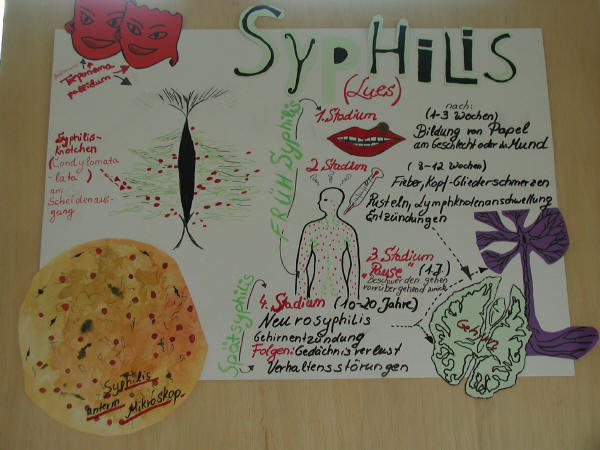 SYPHILIS
(Lues)
Treponema
pallidum
Syphilis-
knötchen
(Condylomata
lata)
am
Scheidenaus-
gang
FRÜHSyphilis
1. Stadium
nach:
(1-3 Wochen)
Bildung von Papel
am Geschlecht oder Mund
2. Stadium
(8-12 Wochen)
Fieber, Kopf-Gliederschmerzen
Pusteln, Lymphknotenanschwellung
Entzündungen
3. Stadium
"Pause" (1 J.)
Beschwerden gehen
vorrübergehend zurück
Spätsyphilis
4. Stadium (10-20 Jahre)
Neurosyphilis
Gehirnentzündung
Folgen: Gedächnisverlust
Verhaltensstörungen
Syphilis
unterm
Mikroskop